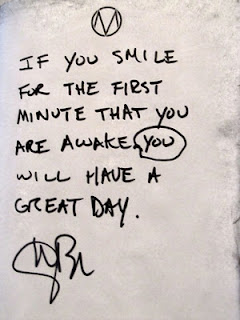 IF YOU SMILE
FOR THE FIRST
MINUTE THAT YOU
ARE AWAKE, YOU
WILL HAVE A
GREAT DAY.